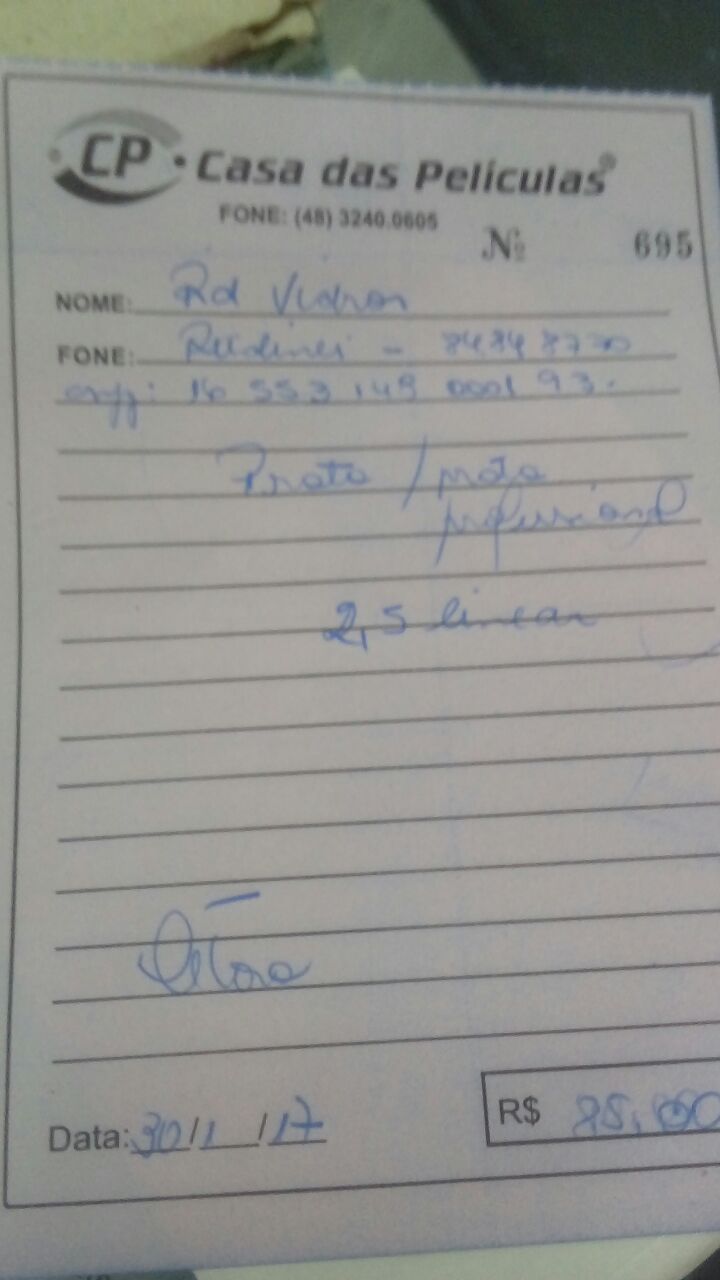 CP • Casa das Películas®
FONE: (48) 3240.0605
Nº 695
NOME: Rd Vidros
FONE: - 8484 8770
cnpj: 16 553 149 0001 93.
Prata / preto
profissional
2,5 linear
Data: 30/1/17 R$